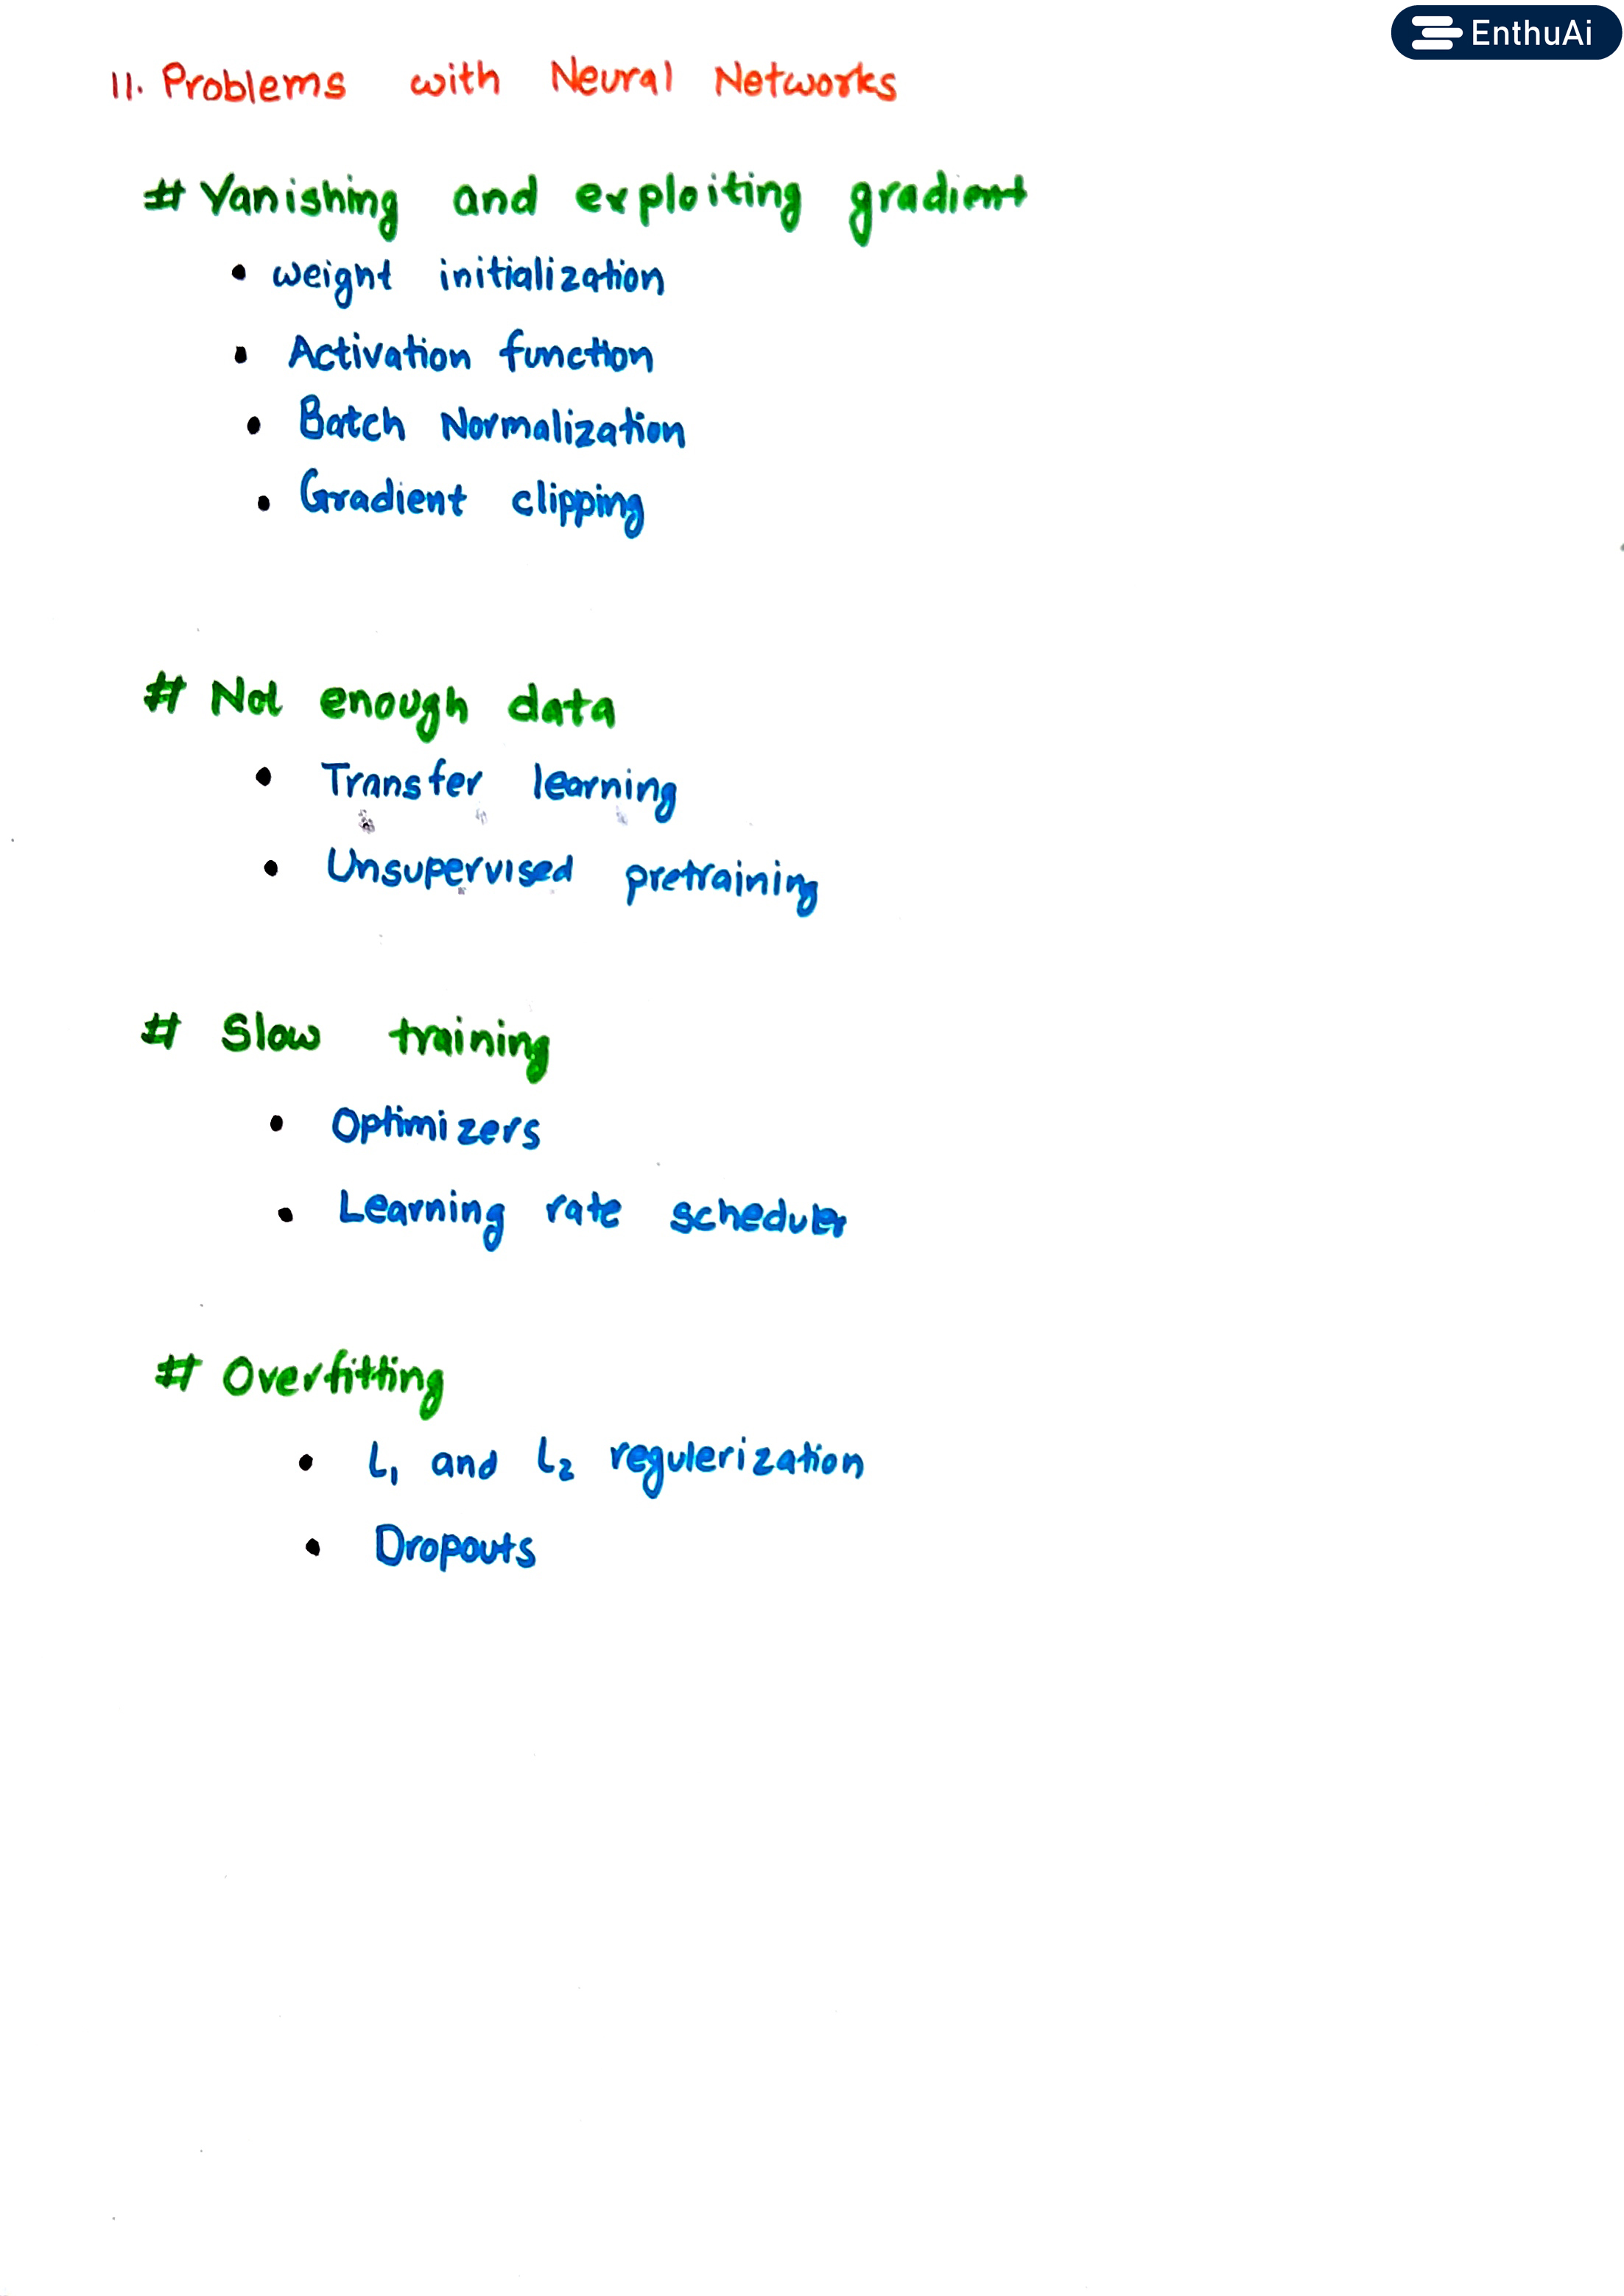 EnthuAi
11. Problems with Neural Networks
# Vanishing and exploiting gradient
• weight initialization
• Activation function
• Batch Normalization
• Gradient clipping
# Not enough data
• Transfer learning
• Unsupervised pretraining
# Slow training
• Optimizers
• Learning rate scheduler
# Overfitting
• L₁ and L₂ regulerization
• Dropouts